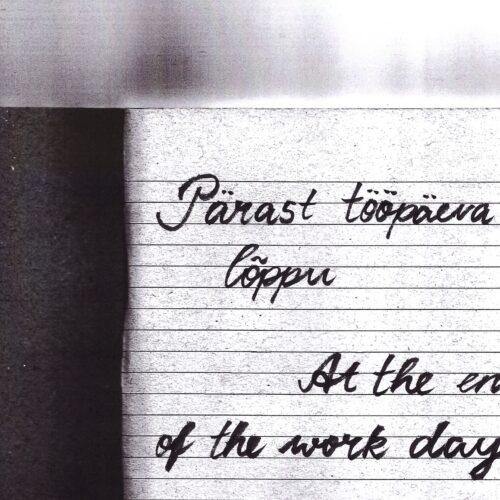 Pärast tööpäeva
lõppu
At the en
of the work day